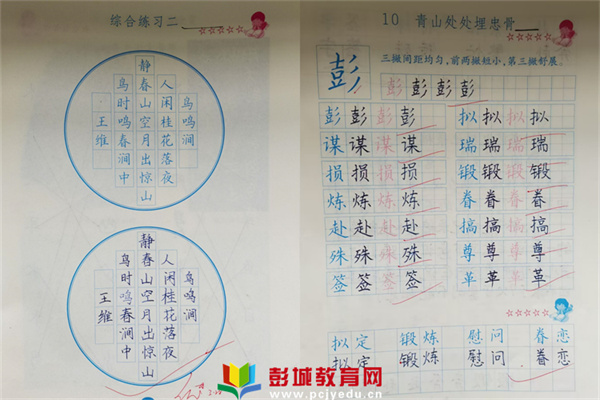 综合练习二
鸟鸣涧
人闲桂花落夜
静春山空月出惊山
鸟时鸣春涧中
王维
鸟鸣涧
人闲桂花落夜
静春山空月出惊山
鸟时鸣春涧中
王维
10 青山处处埋忠骨
三撇间距均匀，前两撇短小，第三撇舒展。
彭 彭 彭 彭 彭
彭 彭 彭 彭 拟 拟 拟 拟
谋 谋 谋 谋 瑞 瑞 瑞 瑞
损 损 损 损 锻 锻 锻 锻
炼 炼 炼 炼 眷 眷 眷 眷
赴 赴 赴 赴 搞 搞 搞 搞
殊 殊 殊 殊 尊 尊 尊 尊
签 签 签 签 革 革 革 革
拟定 锻炼 慰问 眷恋
拟定 锻炼 慰问 眷恋
彭城教育网
www.pcjyedu.cn